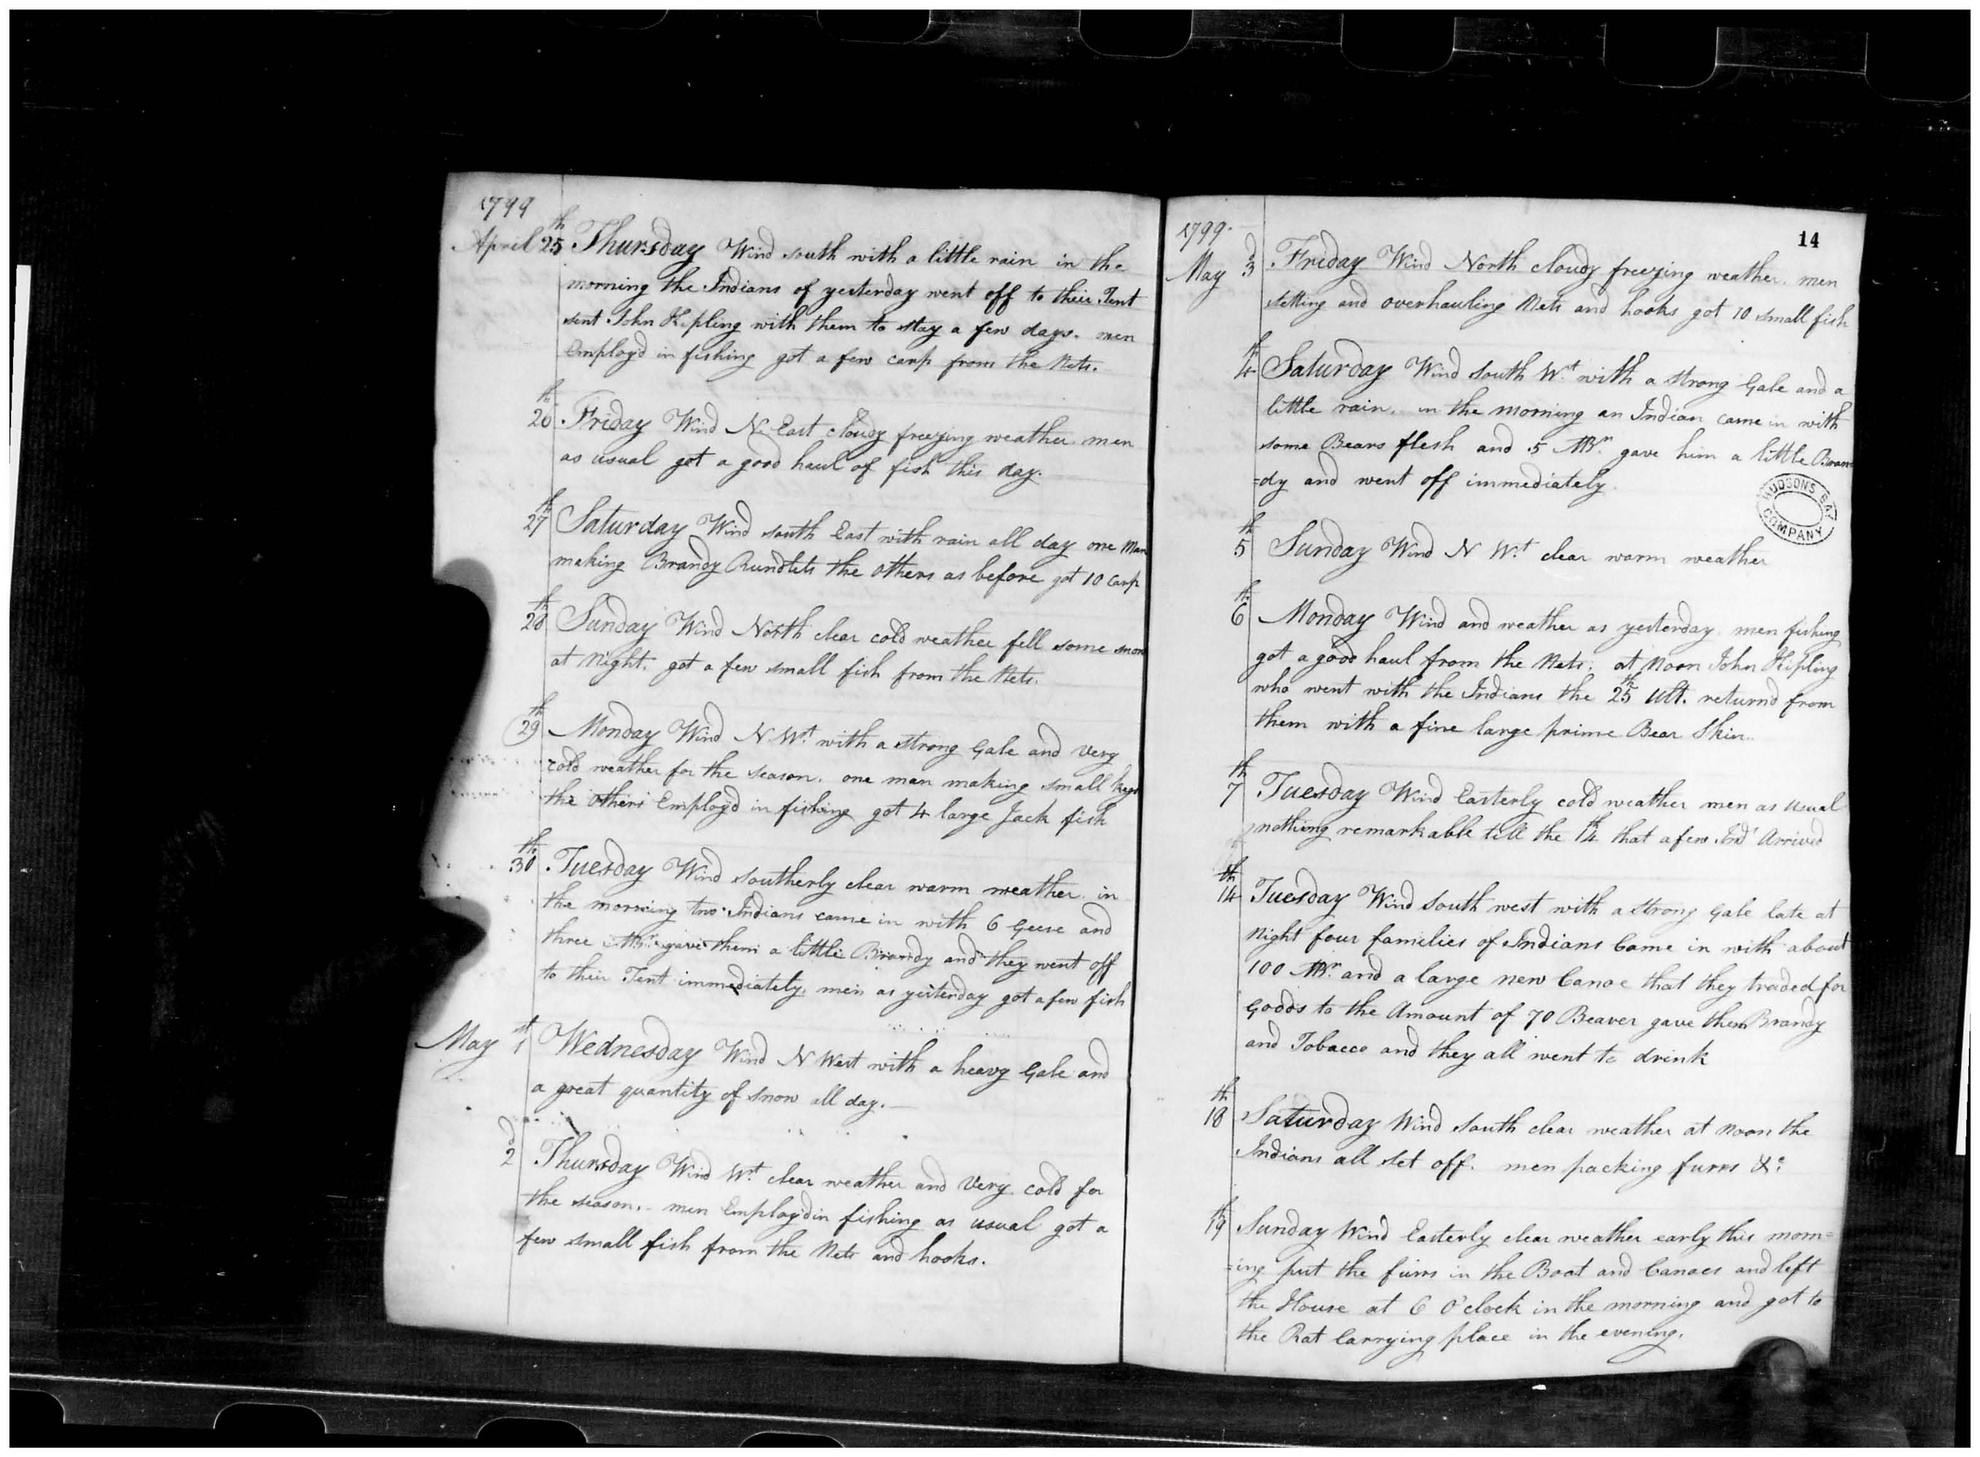 1799
April 25th Thursday Wind south with a little rain in the
morning the Indians of yesterday went off to their Tent
sent John Kipling with them to stay a few days. men
Employd in fishing got a few carp from the Nets.
26th Friday Wind N. East cloudy freezing weather men
as usual got a good haul of fish this day.
27th Saturday Wind south East with rain all day one Man
making Brandy Rundlets the others as before got 10 Carp
28th Sunday Wind North clear cold weather fell some snow
at Night. got a few small fish from the Nets.
29th Monday Wind N Wt with a strong Gale and Very
cold weather for the season. one man making small kegs
the others Employd in fishing got 4 large Jack fish
30th Tuesday Wind southerly clear warm weather. in
the morning two Indians came in with 6 Geese and
three gave them a little Brandy and they went off
to their Tent immediately. men as yesterday got a few fish
May 1st Wednesday Wind N West with a heavy Gale and
a great quantity of snow all day.
2d Thursday Wind Wt clear weather and Very cold for
the season. men Employd in fishing as usual got a
few small fish from the Nets and hooks.
1799.
14
May 3d Friday Wind North cloudy freezing weather. men
setting and overhauling Nets and hooks got 10 small fish
4th Saturday Wind South Wt with a strong Gale and a
little rain. in the morning an Indian came in with
some Bears flesh and 5 MBr. gave him a little Bran
=dy and went off immediately.
HUDSONS BAY COMPANY
5th Sunday Wind N Wt clear warm weather
6th Monday Wind and weather as yesterday men fishing
got a good haul from the Nets. at Noon John Kipling
who went with the Indians the 25th Ult. returnd from
them with a fine large prime Bear Skin.
7th Tuesday Wind Easterly cold weather men as usual
nothing remarkable till the 14th that a few Inds Arrived
14th Tuesday Wind South west with a strong Gale late at
Night four families of Indians Came in with about
100 MBr. and a large new Canoe that they traded for
Goods to the Amount of 70 Beaver gave them Brandy
and Tobacco and they all went to drink
18th Saturday Wind South clear weather at Noon the
Indians all set off. men packing furrs &c.
19th Sunday Wind Easterly clear weather early this morn=
=ing put the furrs in the Boat and Canoes and left
the House at 6 O'clock in the morning and got to
the Rat Carrying place in the evening.